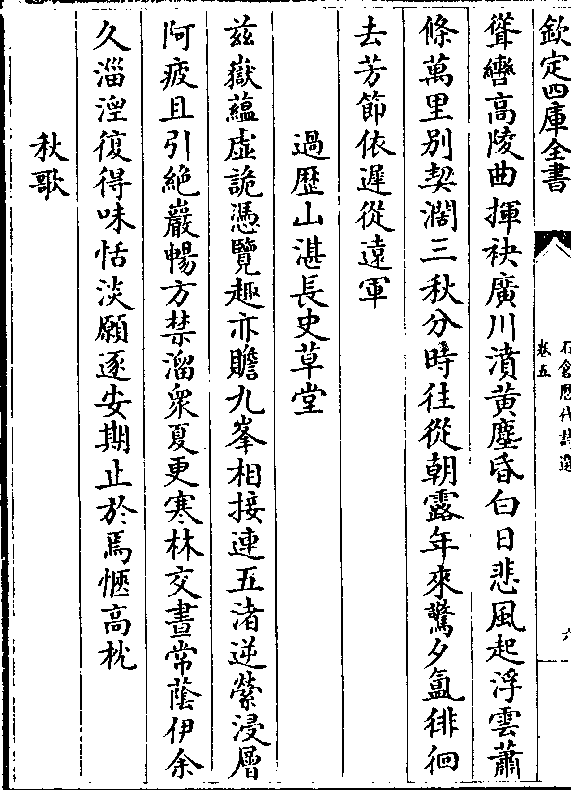 欽定四庫全書
石倉歷代詩選
卷五
六
聳轡高陵曲揮袂廣川濆黄塵昏白日悲風起浮雲蕭
條萬里别契濶三秋分時往從朝露年來驚夕氲徘徊
去芳節依遲從遠軍
過歴山湛長史草堂
兹嶽藴虚詭憑覽趣亦贍九峯相接連五渚逆縈浸層
阿疲且引絶巖暢方禁溜衆夏更寒林交晝常蔭伊余
久淄湼復得味恬淡願逐安期止於焉愜高枕
秋歌